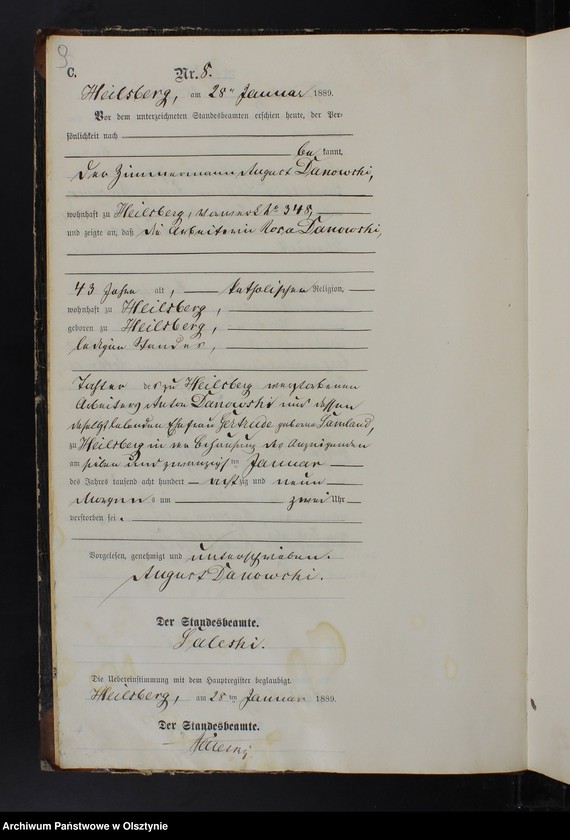 9
C.
Nr. 8.
Heilsberg, am 28ten Januar 1889.
Vor dem unterzeichneten Standesbeamten erschien heute, der Per-
sönlichkeit nach
be kannt,
der Zimmermann August Danowski,
wohnhaft zu Heilsberg, No 348,
und zeigte an, daß die Arbeiterin Rosa Danowski,
43 Jahre alt, katholischer Religion,
wohnhaft zu Heilsberg,
geboren zu Heilsberg,
ledigen Standes,
Tochter des zu Heilsberg verstorbenen
Arbeiters Anton Danowski und dessen
daselbst lebenden Ehefrau Gertrude geborne
zu Heilsberg in der Behausung des Anzeigenden
am sieben und zwanzigsten Januar
des Jahres tausend acht hundert acht zig und neun
Morgens um zwei Uhr
verstorben sei.
Vorgelesen, genehmigt und unterschrieben.
August Danowski.
Der Standesbeamte.
Die Uebereinstimmung mit dem Hauptregister beglaubigt.
Heilsberg, am 28ten Januar 1889.
Der Standesbeamte.
Archiwum Państwowe w Olsztynie